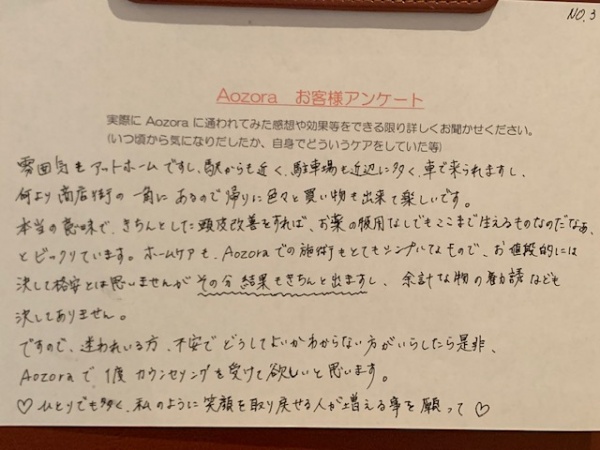 NO.3
Aozora お客様アンケート
実際に Aozora に通われてみた感想や効果等をできる限り詳しくお聞かせください。
(いつ頃から気になりだしたか、自身でどういうケアをしていた等)
雰囲気もアットホームですし、駅からも近く、駐車場も近辺に多く、車で来られますし、
何より商店街の一角にあるので帰りに色々と買い物も出来て楽しいです。
本当の意味で、きちんとした頭皮改善をすれば、お薬の服用なしでもここまで生えるものなのだなぁ、
とビックリしています。ホームケアも、Aozoraでの施術もとてもシンプルなもので、お値段的には
決して格安とは思いませんがその分結果もきちんと出ますし、余計な物の勧誘なども
決してありません。
ですので、迷われいる方、不安でどうしてよいかわからない方がいらしたら是非、
Aozoraで、1度カウンセリングを受けて欲しいと思います。
♡ひとりでも多く、私のように笑顔を取り戻せる人が増える事を願って♡